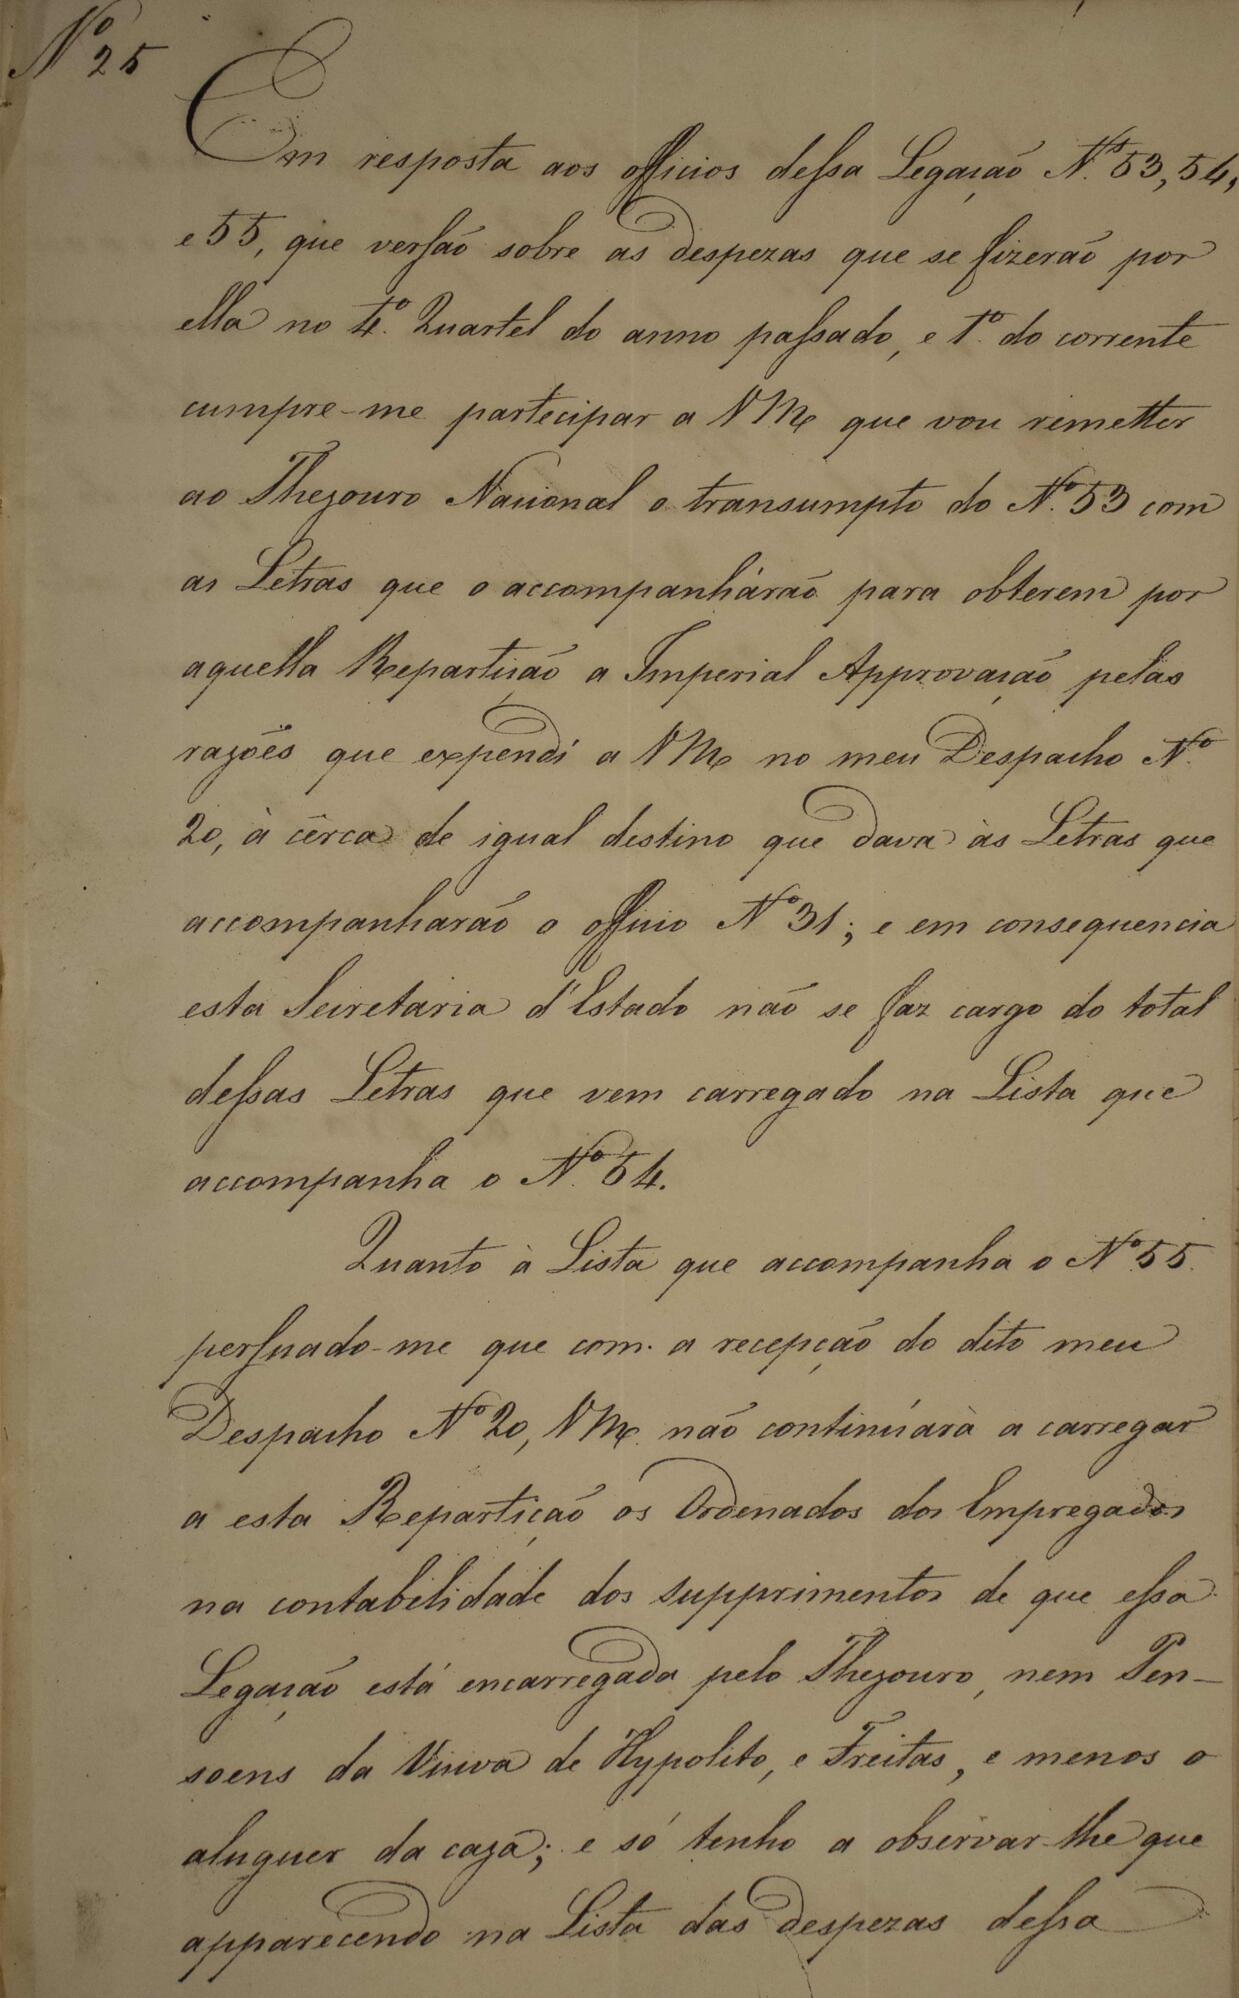 Nº 25
Em resposta aos officios dessa Legação Nºs 53, 54,
e 55, que versão sobre as despezas que se fizerão por
ella no 4º Quartel do anno passado, e 1º do corrente
cumpre-me partecipar a VMce que vou remetter
ao Thezouro Nacional o transumpto do Nº 53 com
as Letras que o accompanhárão para obterem por
aquella Repartição a Imperial Approvação pelas
razões que expendi a VMce no meu Despacho Nº
20, à cêrca de igual destino que dava às Letras que
accompanharão o officio Nº 31; e em consequencia
esta Secretaria d'Estado não se faz cargo do total
dessas Letras que vem carregado na Lista que
accompanha o Nº 54.
Quanto à Lista que accompanha o Nº 55.
persuado-me que com a recepção do dito meu
Despacho Nº 20, VMce não continúarà a carregar
a esta Repartição os Ordenados dos Empregados
na contabilidade dos supprimentos de que essa
Legação está encarregada pelo Thezouro, nem Pen-
soens da Viuva de Hypolito, e Freitas, e menos o
aluguer da caza; e só tenho a observar-lhe que
apparecendo na Lista das despezas dessa